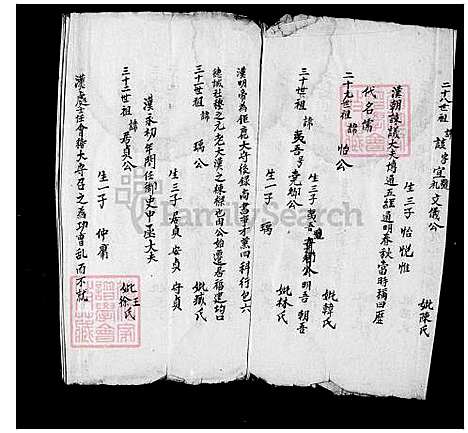 二十八世祖 諱 該 字宜禮 號文儀公
妣陳氏
生三子 怡 悅 惟
漢朝諫議大夫博通五經通明春秋當時稱四歷
代名儒
二十九世祖 諱 怡公
妣韓氏
生三子 夷吾 明吾 朝吾
三十世祖 諱 夷吾 號堯卿公
妣林氏
生一子 瑀
漢明帝為鉅鹿太守後錄尚書事才兼四科行包六
德城社稷之元老大漢之棟樑也因公始遷居福建坊口
三十一世祖 諱 瑀公
妣臧氏
生三子 居貞 安貞 守貞
漢永初年間任御史中丞大夫
三十二世祖 諱 居貞公
妣王氏 徐氏
生一子 仲霸
漢處士任會稽太守召之為功曹亂而不就
FamilySearch